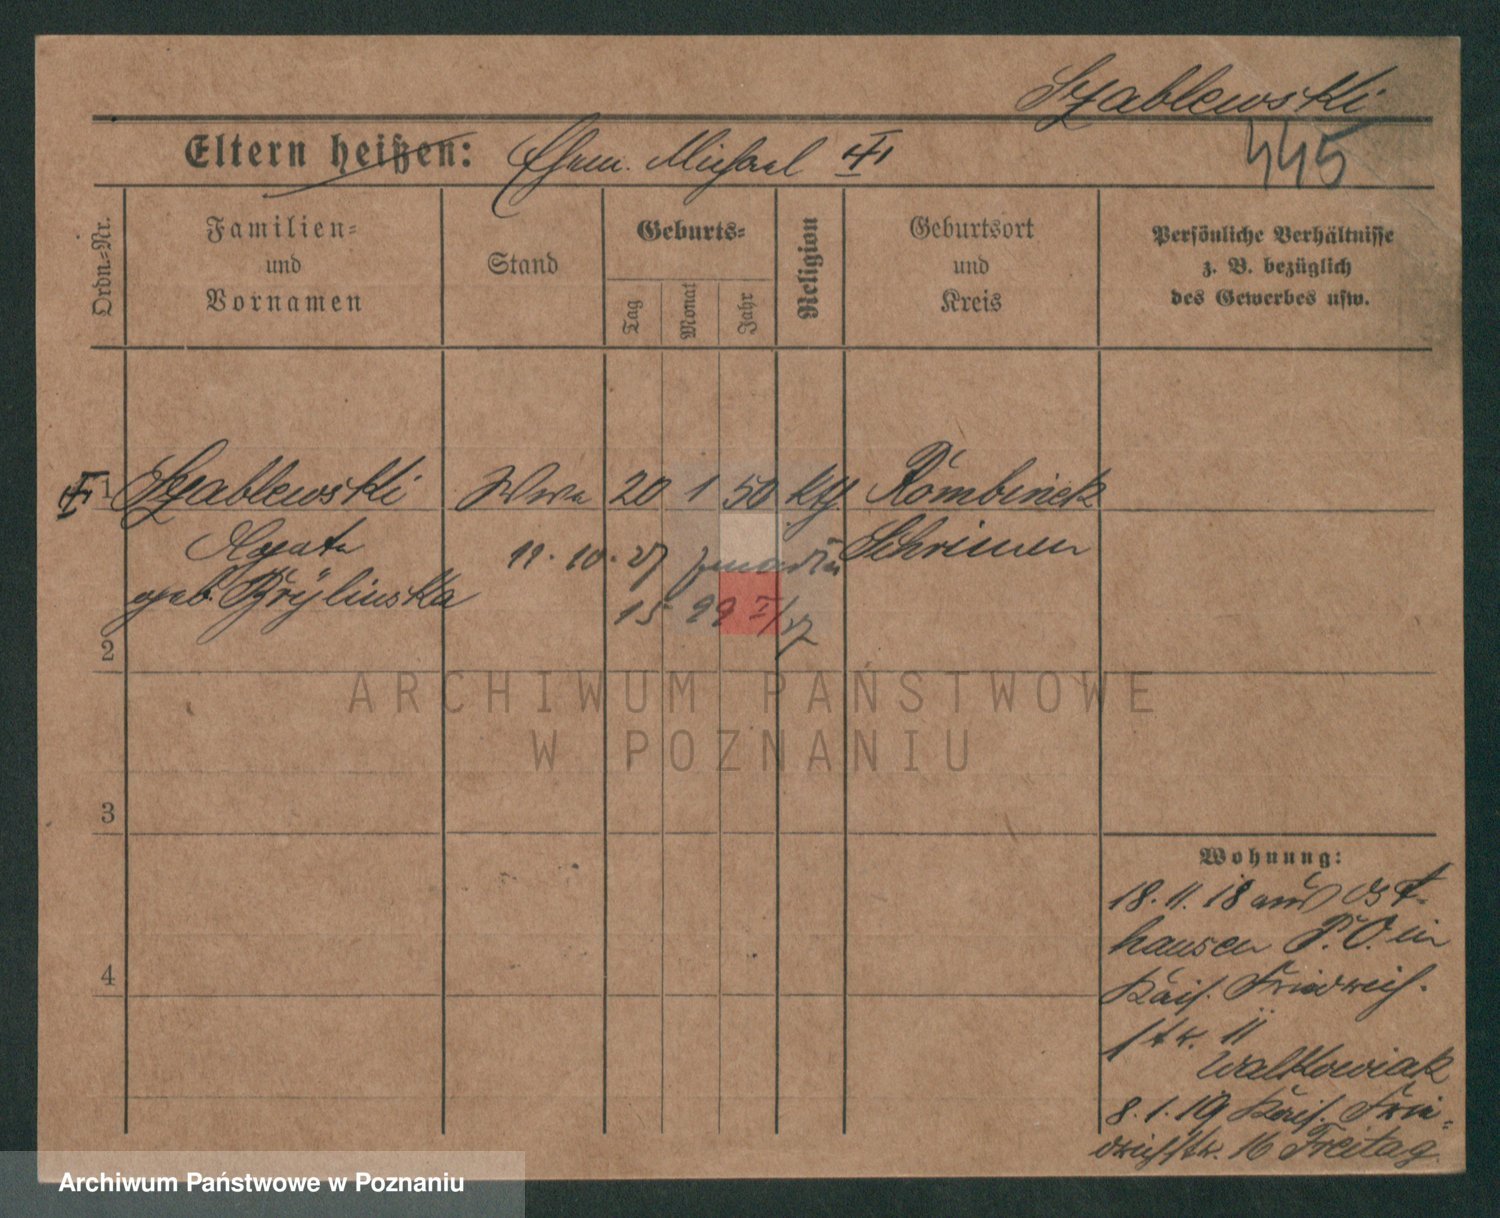 Szablewski
445
Eltern heißen: Ehem. Michael
Ordn.-Nr.
Familien-
und
Vornamen
Stand
Geburts-
Tag
Monat
Jahr
Religion
Geburtsort
und
Kreis
Persönliche Verhältnisse
z. B. bezüglich
des Gewerbes usw.
1 Szablewski Wwe 20 1 50 kth Rombinek
Agata 11.10.27 Schrimm
geb. Brylinska
15
2
3
4
Wohnung:
18.11.18 aus Ost-
hausen P.O. in
Kais. Friedrich-
str. 11
Walkowiak
8.1.19 Kais. Frie-
drichstr. 16 Freitag.
ARCHIWUM PAŃSTWOWE
W POZNANIU
Archiwum Państwowe w Poznaniu